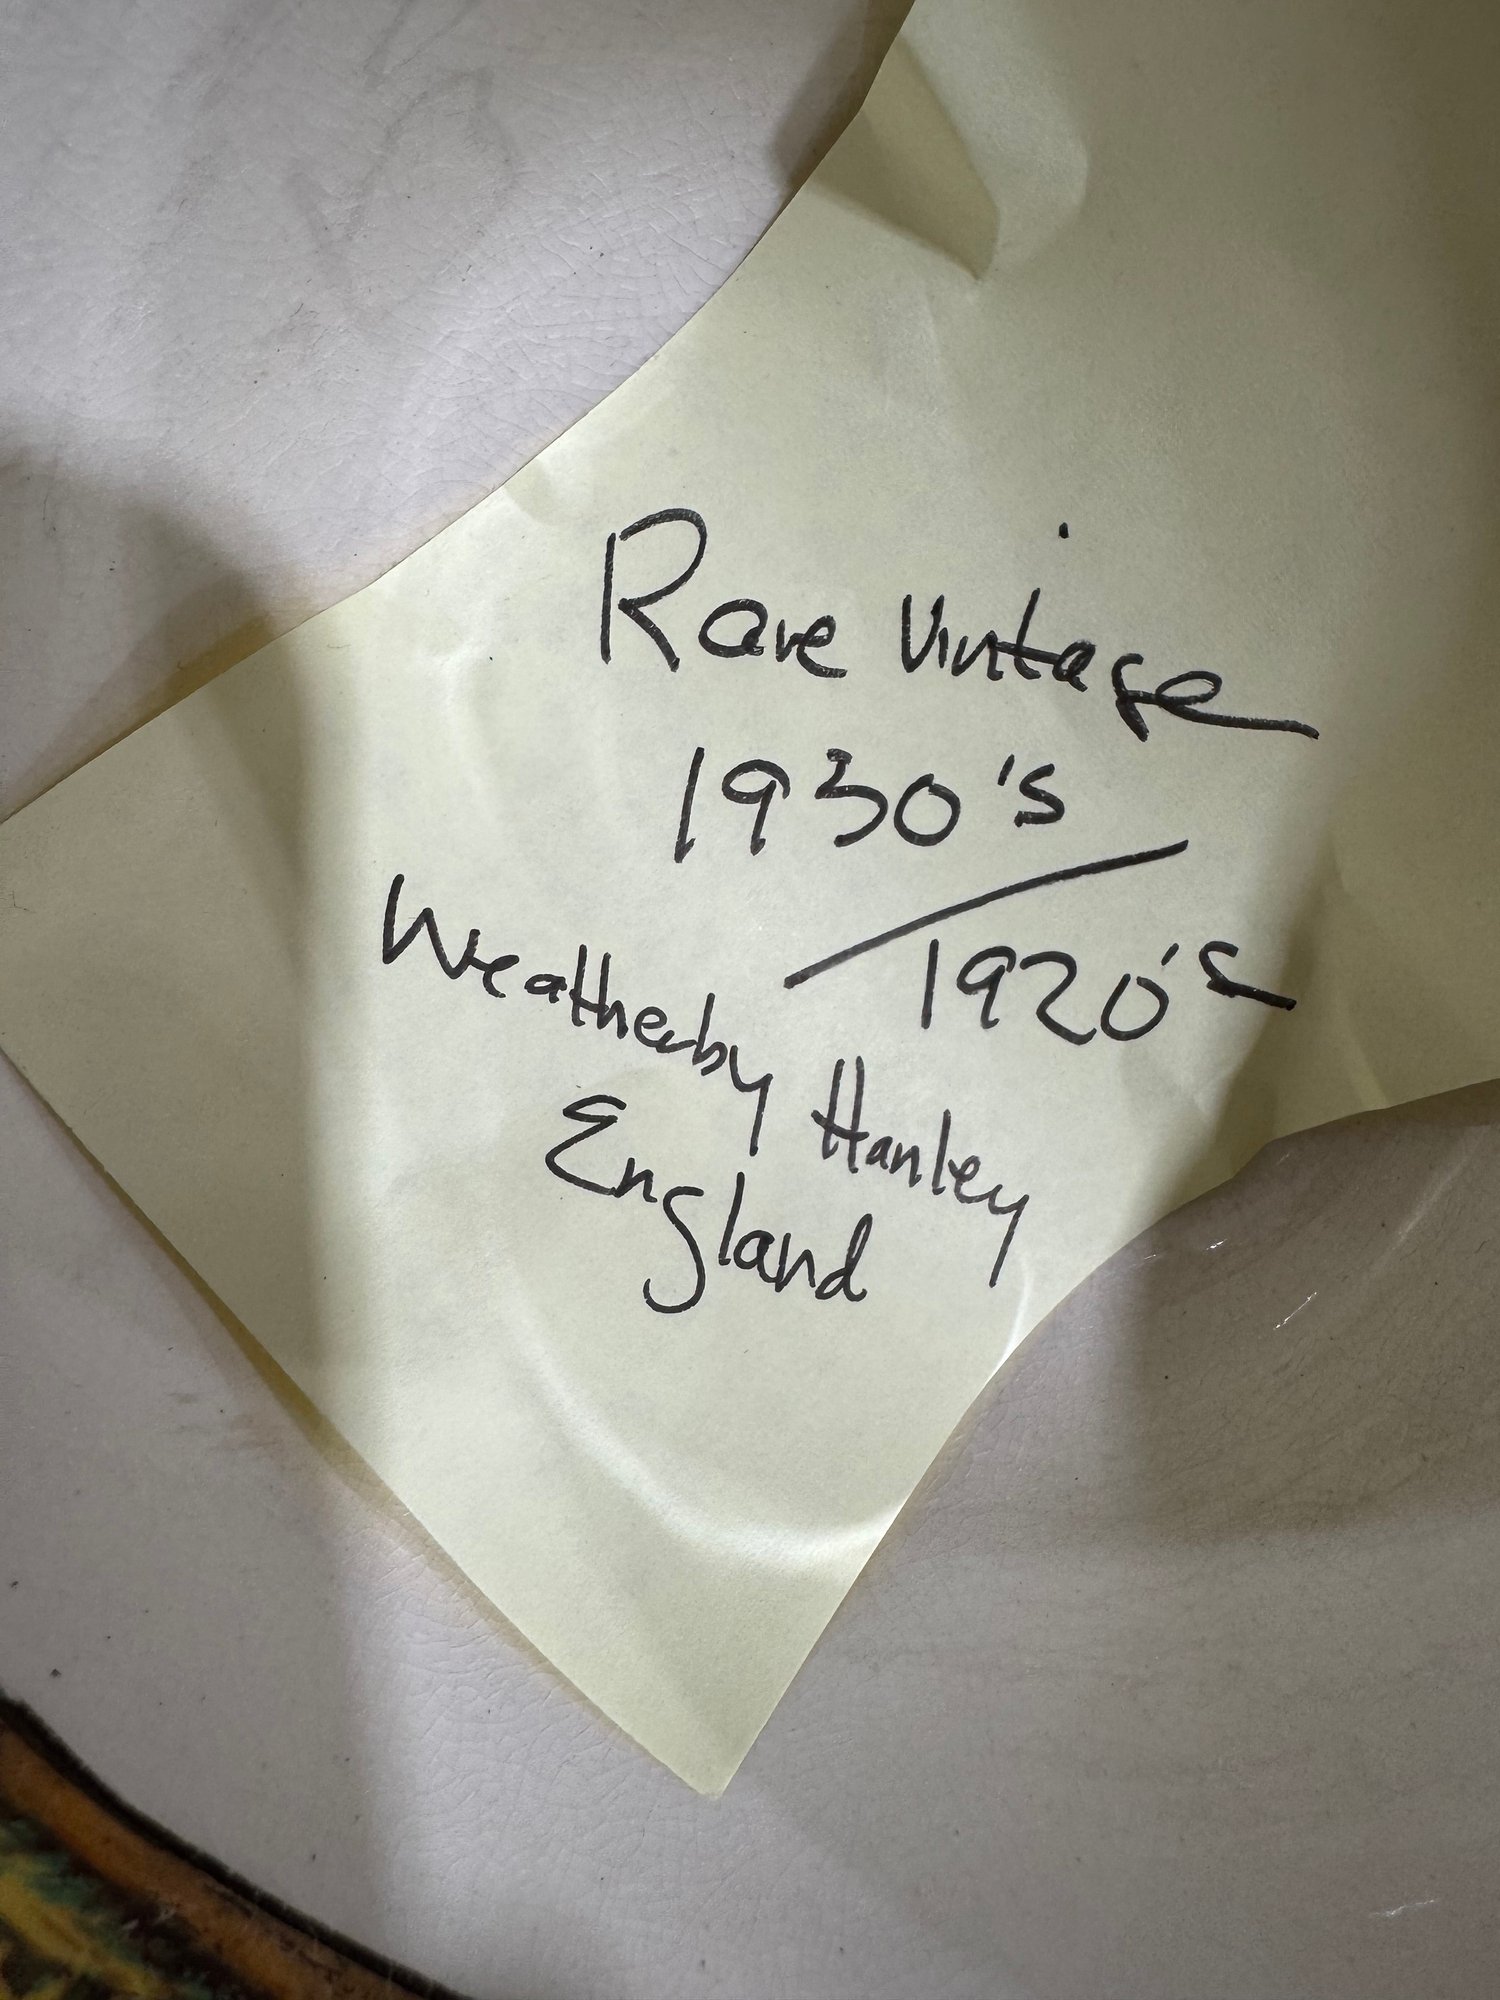 Rare Vintage
1930's
/1920's
Weatherby Hanley
England